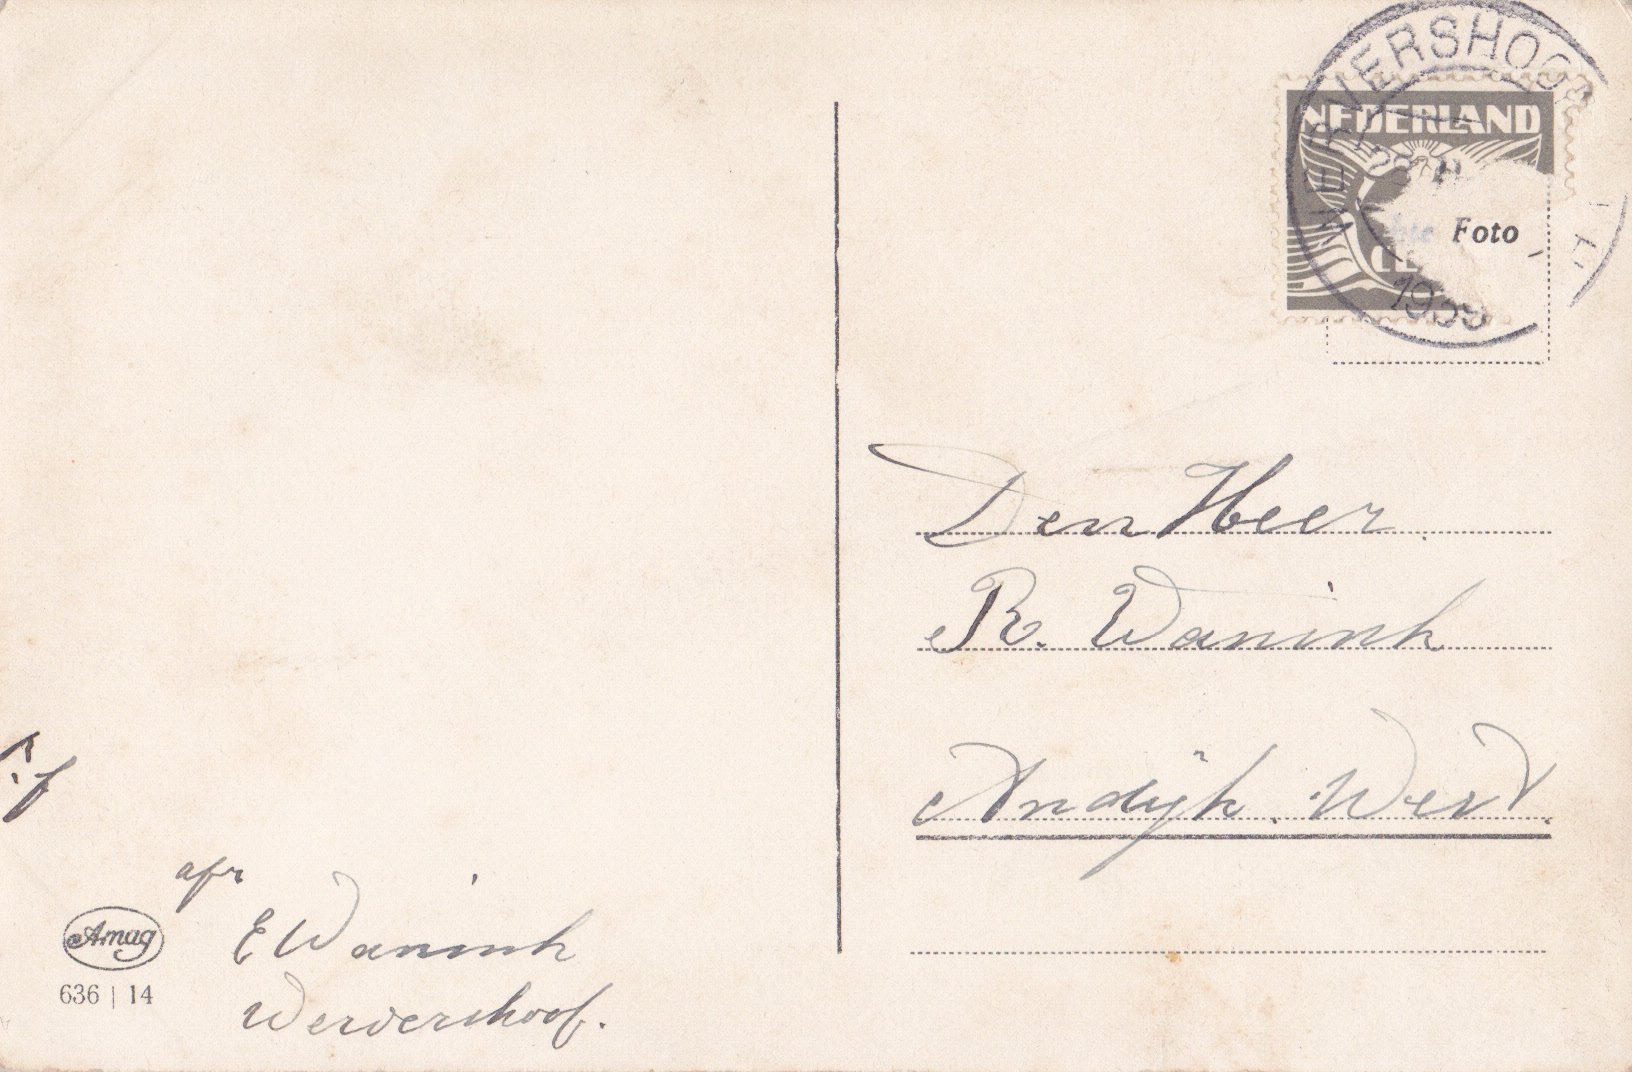 WERVERSHOOF
NEDERLAND
1939
Foto
Den Heer
R. Wanink
Andijk. West.
afz
E Wanink
Wervershoof.
Amag
636 | 14